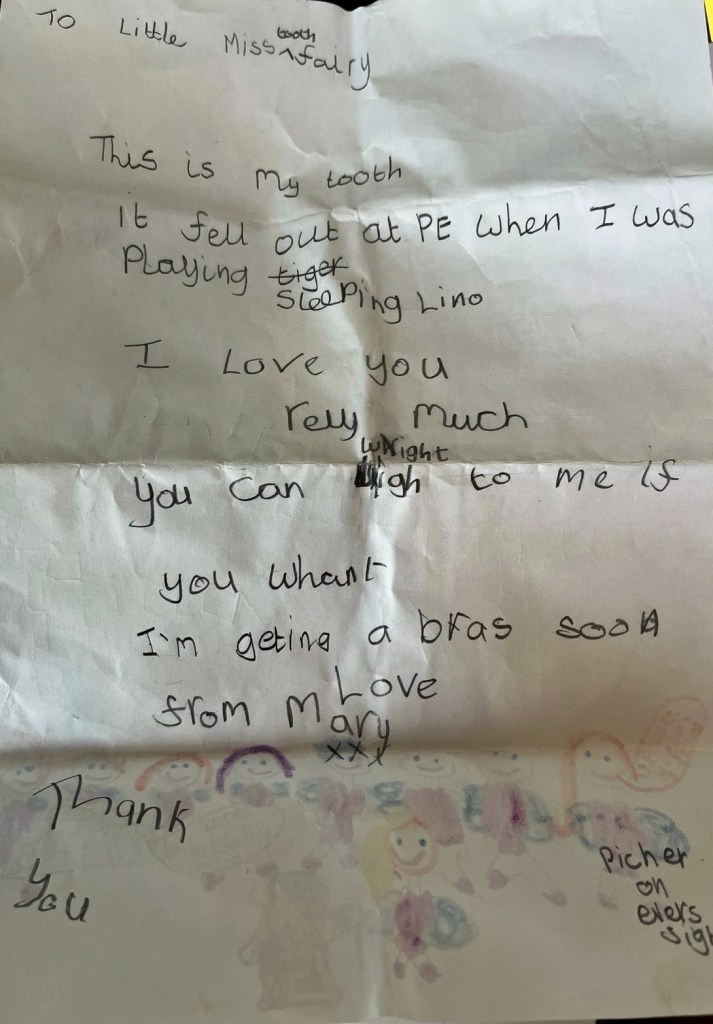 To Little Miss tooth fairy
This is my tooth
it fell out at PE when I was
Playing tiger
Sleeping Lino
I Love you
rely much
wright
you can to me if
you whant
I'm geting a bras soon
Love
from Mary
xxx
Thank
You
picher
on
evers
sigh